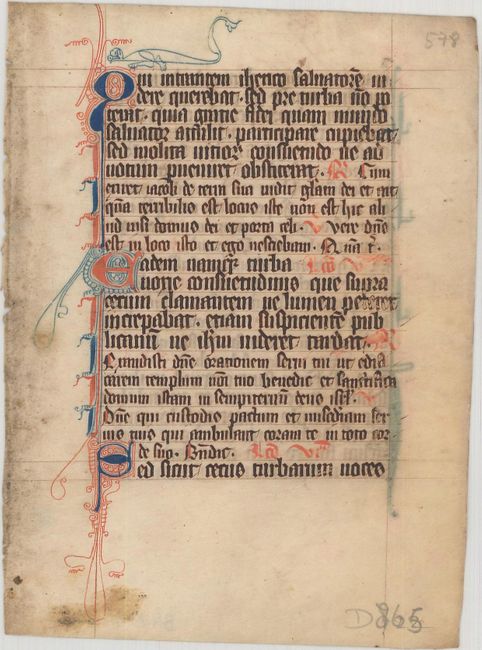 578
Qui intrantem iherico saluatorē ui
dere querebat · sed pre turba nō po
terat · quia gratie dei quam mundo
saluator attulit · participare cupiebat
sed molita uitiorū consuetudo ne ad
uotum pueniret obstiterat · R Cum
exiret iacob de terra sua uidit glam dei et ait
quā terribilis est locus iste non est hic ali
ud nisi domus dei et porta celi · V Vere dns
est in loco isto et ego nesciebam ·
Eadem namq turba
uoxie consuetudinis que supra
cecum clamantem ne lumen peteret
increpabat · etiam suspiciente pub
licanū ne ihm uideret tardat · R
Exaudisti dne orationem serui tui ut edifi
carem templum nōi tuo benedic et sanctifica
domum istam in sempiternū deus isrl ·
Dne qui custodis pactum et misedram ser
uis tuis qui ambulant coram te in toto cor
de suo · Bndic · Lco VI
Sed sicut cecus turbarum uoces
D865